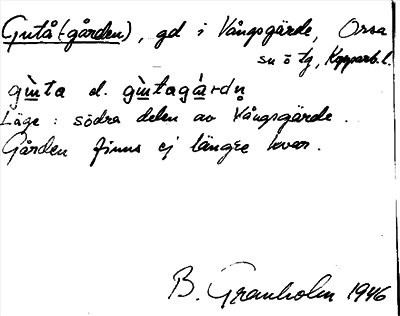 Gutå(-gården), gd i Vångsgärde, Orsa
sn ö tg, Kopparb. l.
gùta el. gùtagàrdn̥
Läge: södra delen av Vångsgärde.
Gården finns ej längre kvar.
B. Granholm 1946